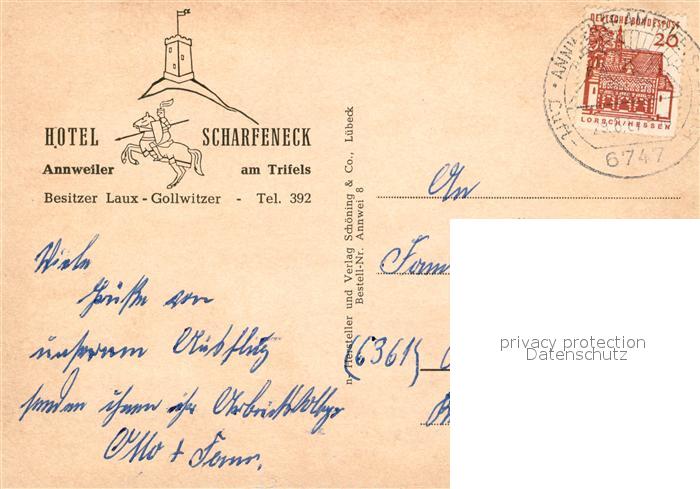 HOTEL SCHARFENECK
Annweiler am Trifels
Besitzer Laux - Gollwitzer - Tel. 392
Viele
Grüße von
unserem Ausflug
senden Ihnen ihr Arbeitskollege
Otto + Fam.
Hersteller und Verlag Schöning & Co., Lübeck
Bestell-Nr. Annwei 8
DEUTSCHE BUNDESPOST
20
LORSCH/HESSEN
ANNWEILER AM
6747
An
Fam
(6361)
privacy protection
Datenschutz